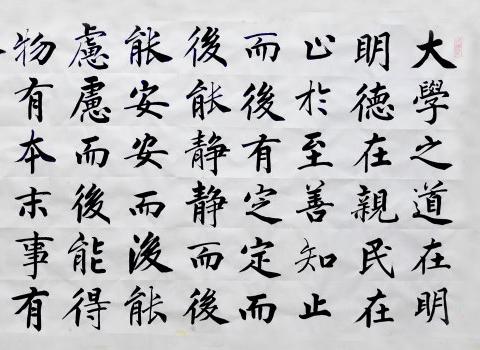 大學之道在明
明德在親民在
止於至善知止
而後有定定而
後能静静而後
能安安而後能
慮慮而後能得
物有本末事有